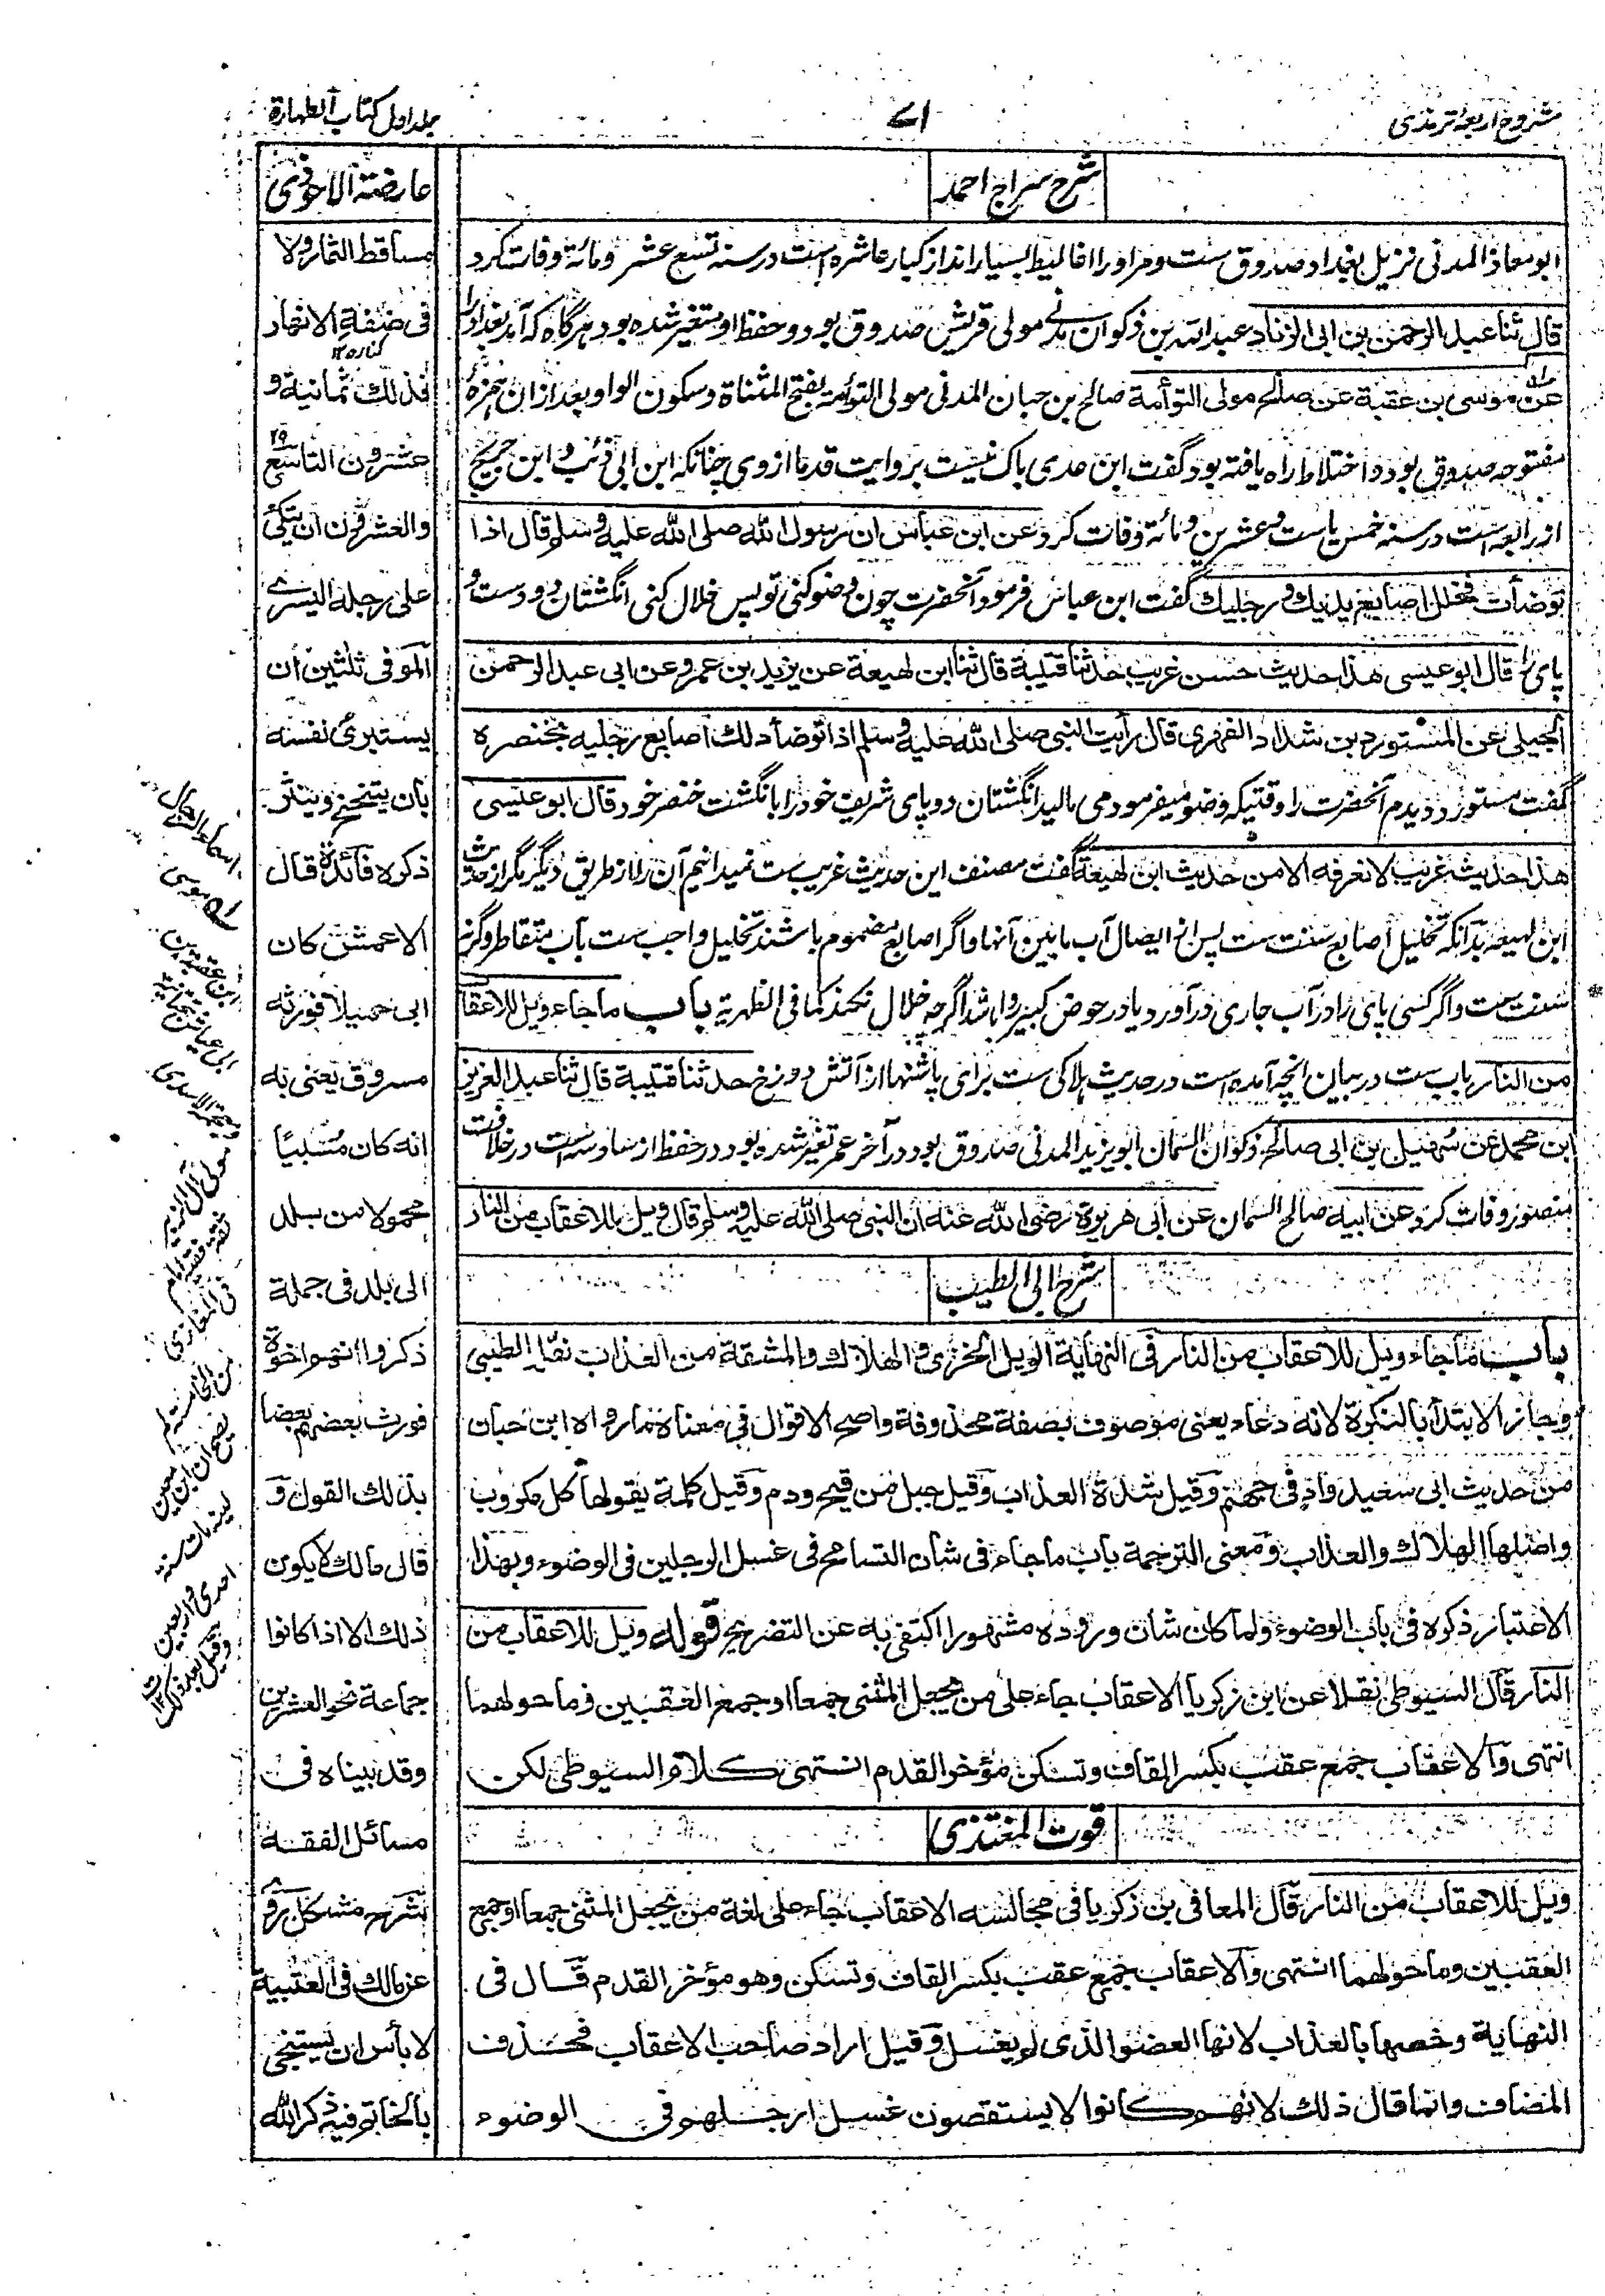 شروح اربعهٔ ترمذی
۷۱
جلد اول کتاب الطهارة
شرح سراج احمد
ابو معاذ المدنی نزیل بغداد صدوق ست و مر او را اغالیط بسیار اند از کبار عاشره است در سنه تسع عشر و مائة وفات کرد
قال ثنا عبد الرحمن بن ابی الزناد عبد الله بن ذکوان مدنی مولی قریش صدوق بود و حفظ او متغیر شده بود هرگاه که آمد بغداد را
عن موسی بن عقبة عن صالح مولی التوأمة صالح بن حبان المدنی مولی التوأمه بفتح المثناة و سکون الواو بعد ازان همزهٔ
مفتوحه صدوق بود و اختلاط راه یافته بود گفت ابن عدی باک نیست بروایت قدما از وی چنانکه ابن ابی ذئب و ابن جریج
از رابعه است در سنه خمس یاست و عشرین و مائة وفات کرد عن ابن عباس ان رسول الله صلی الله علیه وسلم قال اذا
توضأت فخلل اصابع یدیك ورجلیك گفت ابن عباس فرمود آنحضرت چون وضو کنی تو پس خلال کنی انگشتان دو دست و
پای را قال ابو عیسی هذا حدیث حسن غریب حدثنا قتیبة قال ثنا ابن لهیعة عن یزید بن عمرو عن ابی عبد الرحمن
الحبلی عن المستورد بن شداد الفهری قال رأیت النبی صلی الله علیه وسلم اذا توضأ دلك اصابع رجلیه بخنصره
گفت مستورد دیدم آنحضرت را وقتیکه وضو میفرمود می مالید انگشتان دو پای شریف خود را بانگشت خنصر خود قال ابو عیسی
هذا حدیث غریب لا نعرفه الا من حدیث ابن لهیعة گفت مصنف این حدیث غریب ست نمیدانیم آن را از طریق دیگر مگر از حدیث
ابن لهیعه بدانکه تخلیل اصابع سنت ست پس از ایصال آب مابین آنها و اگر اصابع مضموم باشند تخلیل واجب ست بآب متقاطر وگرنه
سنت ست و اگر کسی پای را در آب جاری در آورد یا در حوض کبیر روا باشد اگرچه خلال نکند کما فی الظهریه باب ما جاء ویل للاعقاب
من النار باب ست در بیان انچه آمده است در حدیث هلاکی ست برای پاشنها از آتش دوزخ حدثنا قتیبة قال ثنا عبد العزیز
ابن محمد عن سهیل بن ابی صالح ذکوان السمان ابو یزید المدنی صدوق بود در آخر عمر تغیر شده بود در حفظ از سادسه است در خلافت
منصور وفات کرد عن ابیه صالح السمان عن ابی هریرة رضی الله عنه ان النبی صلی الله علیه وسلم قال ویل للاعقاب من النار
شرح ابی الطیب
باب ما جاء ویل للاعقاب من النار فی النهایة الویل الخزی والهلاك والمشقة من العذاب نقله الطیبی
وجاز الابتدأ بالنکرة لانه دعاء یعنی موصوف بصفة محذوفة واصح الاقوال فی معناه ما رواه ابن حبان
من حدیث ابی سعید واد فی جهنم وقیل شدة العذاب وقیل جبل من قیح ودم وقیل کلمة یقولها کل مکروب
واصلها الهلاك والعذاب ومعنی الترجمة باب ما جاء فی شان التسامح فی غسل الرجلین فی الوضوء وبهذا
الاعتبار ذکره فی باب الوضوء ولما کان شان وروده مشهورا اکتفی به عن التصریح قوله ویل للاعقاب من
النار قال السیوطی نقلا عن ابن زکریا الاعقاب جاء علی من یجعل المثنی جمعا او جمع العقبین وما حولهما
انتهی والاعقاب جمع عقب بکسر القاف وتسکن مؤخر القدم انتهی کلام السیوطی لکن
قوت المغتذی
ویل للاعقاب من النار قال المعافی بن زکریا فی مجالسه الاعقاب جاء علی لغة من یجعل المثنی جمعا او جمع
العقبین وما حولهما انتهی والاعقاب جمع عقب بکسر القاف وتسکن وهو مؤخر القدم قال فی
النهایة وخصها بالعذاب لانها العضو الذی لم یغسل وقیل اراد صاحب الاعقاب فحذف
المضاف وانما قال ذلك لانهم کانوا لا یستقصون غسل ارجلهم فی الوضوء
عارضة الاحوذی
مساقط الثمار ولا
فی ضفة الانهار
کناره ۱۲
فذلك ثمانیة و
عشرون التاسع
۲۹
والعشرون ان یتکئ
علی رجله الیسرے
الموفی ثلثین ان
یستبرئ نفسه
بان یتنحنح وینثر
ذکره فائدة قال
الاعمش کان
ابی حمیلا فورثه
مسروق یعنی به
انه کان مُسْبیًا
محمولا من بلد
الی بلد فی جملة
ذکروا انهم اخوة
فورث بعضهم بعضا
بذلك القول و
قال مالك لا یکون
ذلك الا اذا کانوا
جماعة نحو العشرین
وقد بیناه فی
مسائل الفقه
بشرح مشکل روے
عن مالك فی العتبیة
لا بأس ان یستنجی
بالخاتم فیه ذکر الله
اسماء الرجال
موسی
ابن عقبة بن
ابی عیاش
الاسدی
مولی آل الزبیر
ثقة فقیه امام
فی المغازی
من الخامسة لم
یصح ان ابن معین
لینه مات سنة
احدی واربعین
وقیل بعد ذلك ۱۲